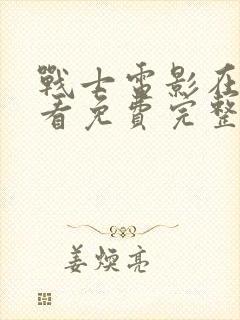 戰士雷影在
看免費完整
姜煐亮